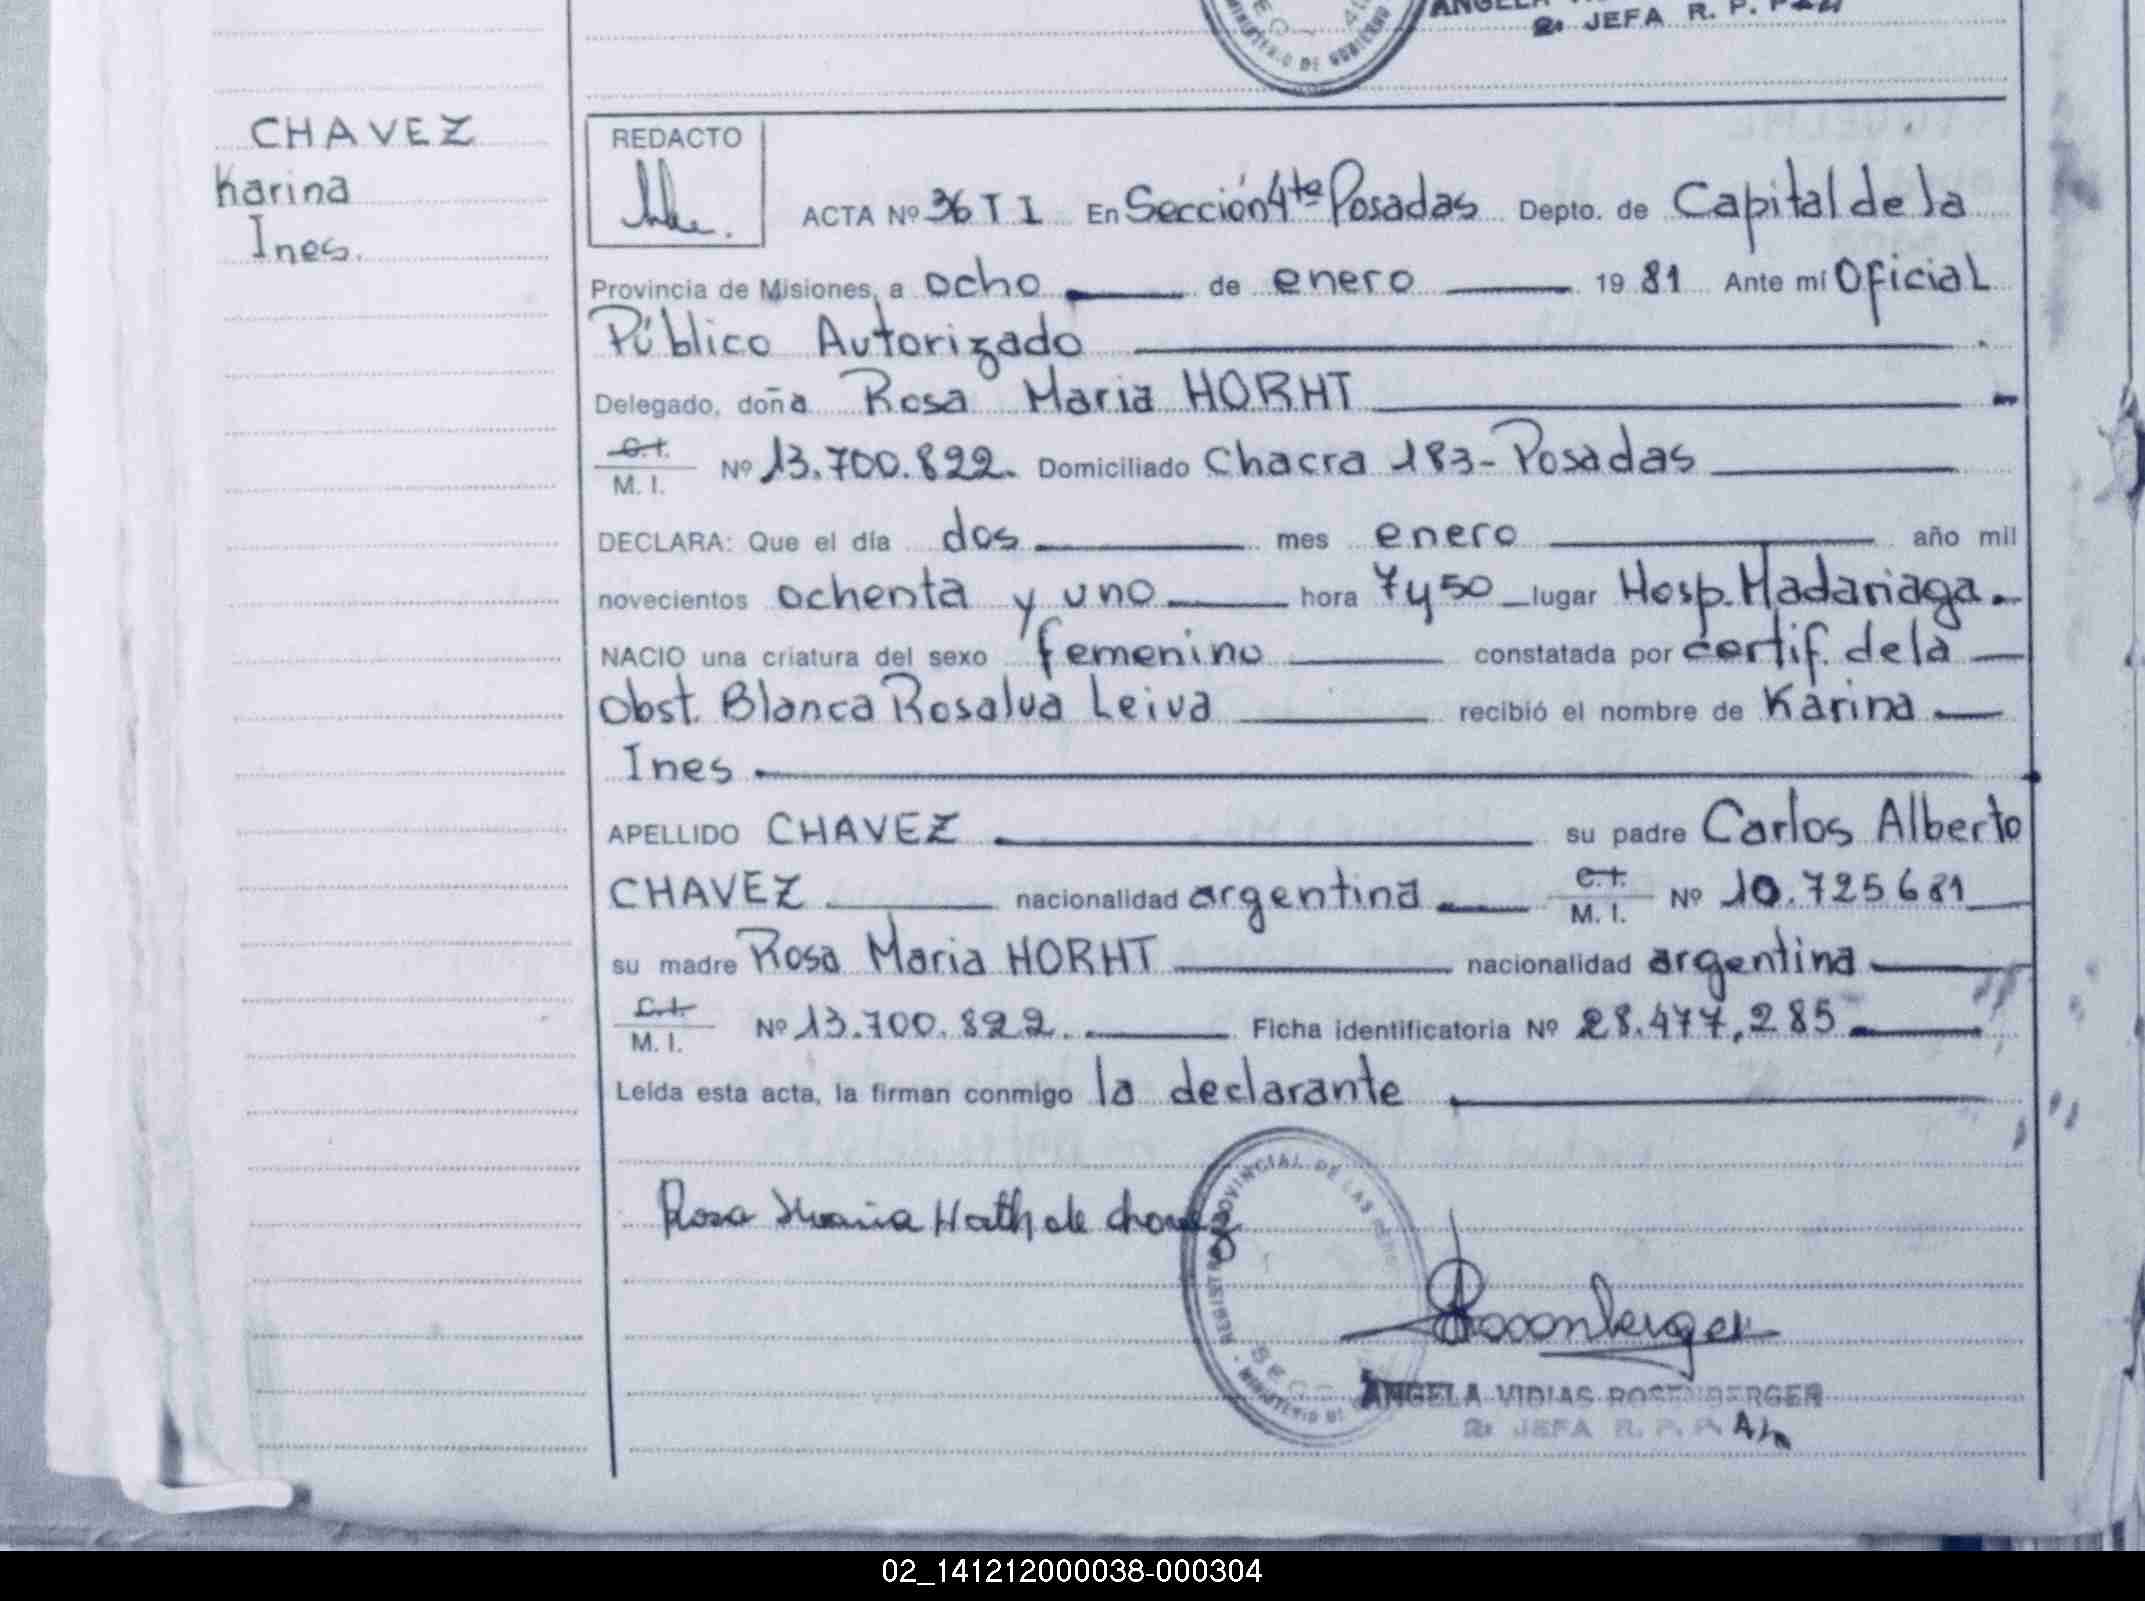 2a JEFA R. P. P.
MINISTERIO DE GOBIERNO
CHAVEZ
Karina
Ines.
REDACTO
ACTA Nº 36 T I En Sección 4ta Posadas Depto. de Capital de la
Provincia de Misiones, a ocho de enero 1981 Ante mí Oficial
Público Autorizado
Delegado, doña Rosa Maria HORHT
C.I. M. I. Nº 13.700.822. Domiciliado Chacra 183 - Posadas
DECLARA: Que el día dos mes enero año mil
novecientos ochenta y uno hora 7 y 50 lugar Hosp. Madariaga.
NACIO una criatura del sexo femenino constatada por certif. de la
Obst. Blanca Rosalva Leiva recibió el nombre de Karina
Ines
APELLIDO CHAVEZ su padre Carlos Alberto
CHAVEZ nacionalidad argentina C.I. M. I. Nº 10.725681
su madre Rosa Maria HORHT nacionalidad argentina
C.I. M. I. Nº 13.700.822. Ficha identificatoria Nº 28.477.285
Leída esta acta, la firman conmigo la declarante
Rosa Maria Horth de Chavez
REGISTRO PROVINCIAL DE LAS
ANGELA VIDIAS ROSENBERGER
2a JEFA R. P. P.
02_141212000038-000304